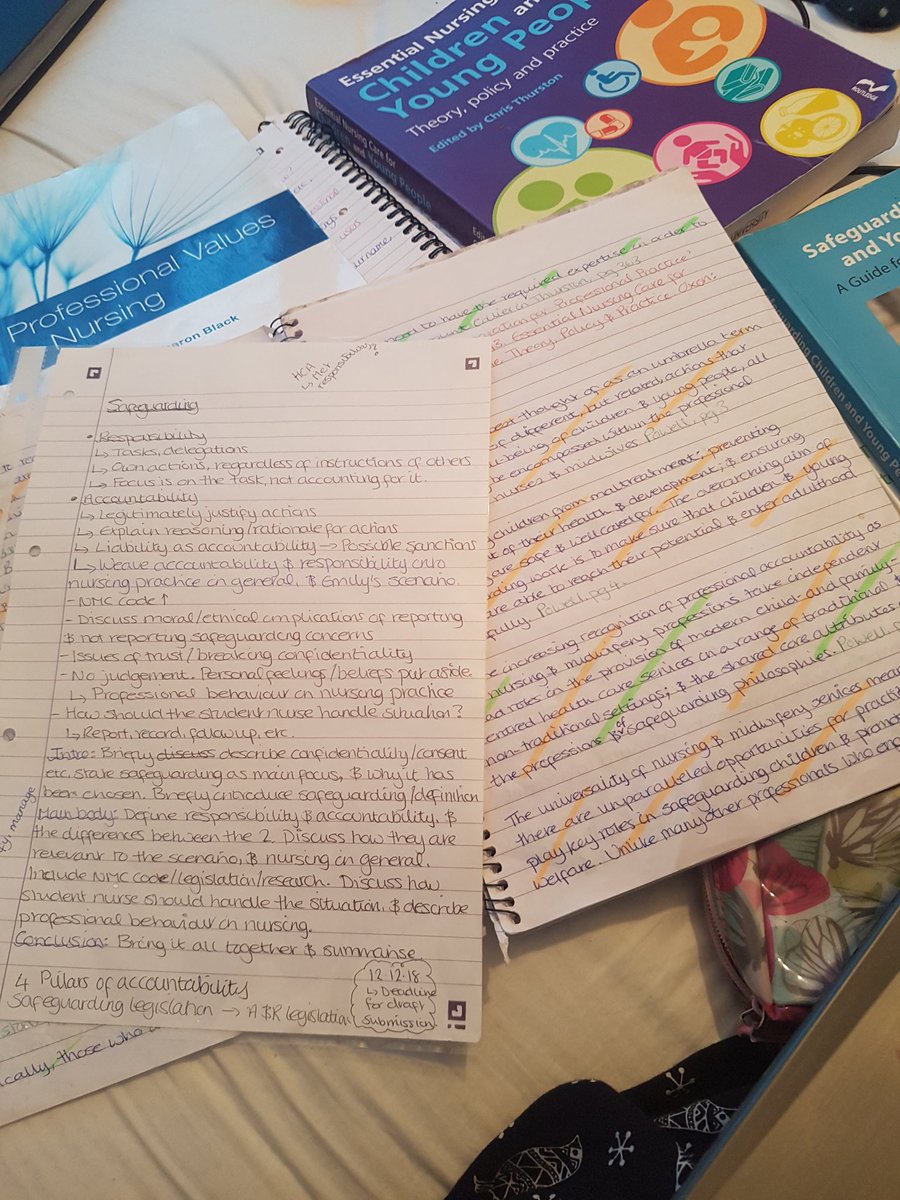 Essential Nursing
Children and
Young People
Theory, policy and practice
Edited by Chris Thurston
ROUTLEDGE
Essential Nursing Care for
Children and Young People
Professional Values
Nursing
Black
Safeguarding
and Yo
A Guide for
Safeguarding Children and Young People
UNIVERSITY
HCA
↳ Met
responsibility?
Safeguarding
• Responsibility
↳ Tasks, delegations
↳ Own actions, regardless of instructions of others
↳ Focus is on the task, not accounting for it.
• Accountability
↳ Legitimately justify actions
↳ Explain reasoning/rationale for actions
↳ Liability as accountability → Possible sanctions
↳ Weave accountability & responsibility into
nursing practice in general, & Emily's scenario.
- NMC Code ↑
- Discuss moral/ethical implications of reporting
& not reporting safeguarding concerns
- Issues of trust/breaking confidentiality
- No judgement. Personal feelings/beliefs put aside.
↳ Professional behaviour in nursing practice
- How should the student nurse handle situation?
↳ Report, record, follow up, etc.
Intro: Briefly discuss describe confidentiality/consent
etc, state safeguarding as main focus, & why it has
been chosen. Briefly introduce safeguarding/definition
Main body: Define responsibility & accountability, &
the differences between the 2. Discuss how they are
relevant to the scenario, & nursing in general.
Include NMC code/legislation/research. Discuss how
student nurse should handle the situation, & describe
professional behaviour in nursing.
Conclusion: Bring it all together & summarise
4 Pillars of accountability
Safeguarding legislation → A&R legislation
12.12.18
↳ Deadline
for draft
submission
manage
to have the required expertise in order to
Thurston, pg 363
for Professional Practice'
Essential Nursing Care for
Theory, Policy & Practice. Oxon:
thought of as an umbrella term
of different, but related, actions that
being of children & young people, all
encompassed within the professional
nurses & midwives. Powell, pg 3
children from maltreatment; preventing
of their health & development; & ensuring
are safe & well cared for. The overarching aim of
work is to make sure that children & young
are able to reach their potential & enter adulthood
Powell, pg 4.
increasing recognition of professional accountability as
nursing & midwifery professions take independent
roles in the provision of modern child- and family-
health care services in a range of traditional &
non-traditional settings; & the shared core attributes
the professions & of safeguarding philosophies. Powell,
The universality of nursing & midwifery services mean
there are unparalleled opportunities for
play key roles in safeguarding children &
welfare. Unlike many other professionals who
those who